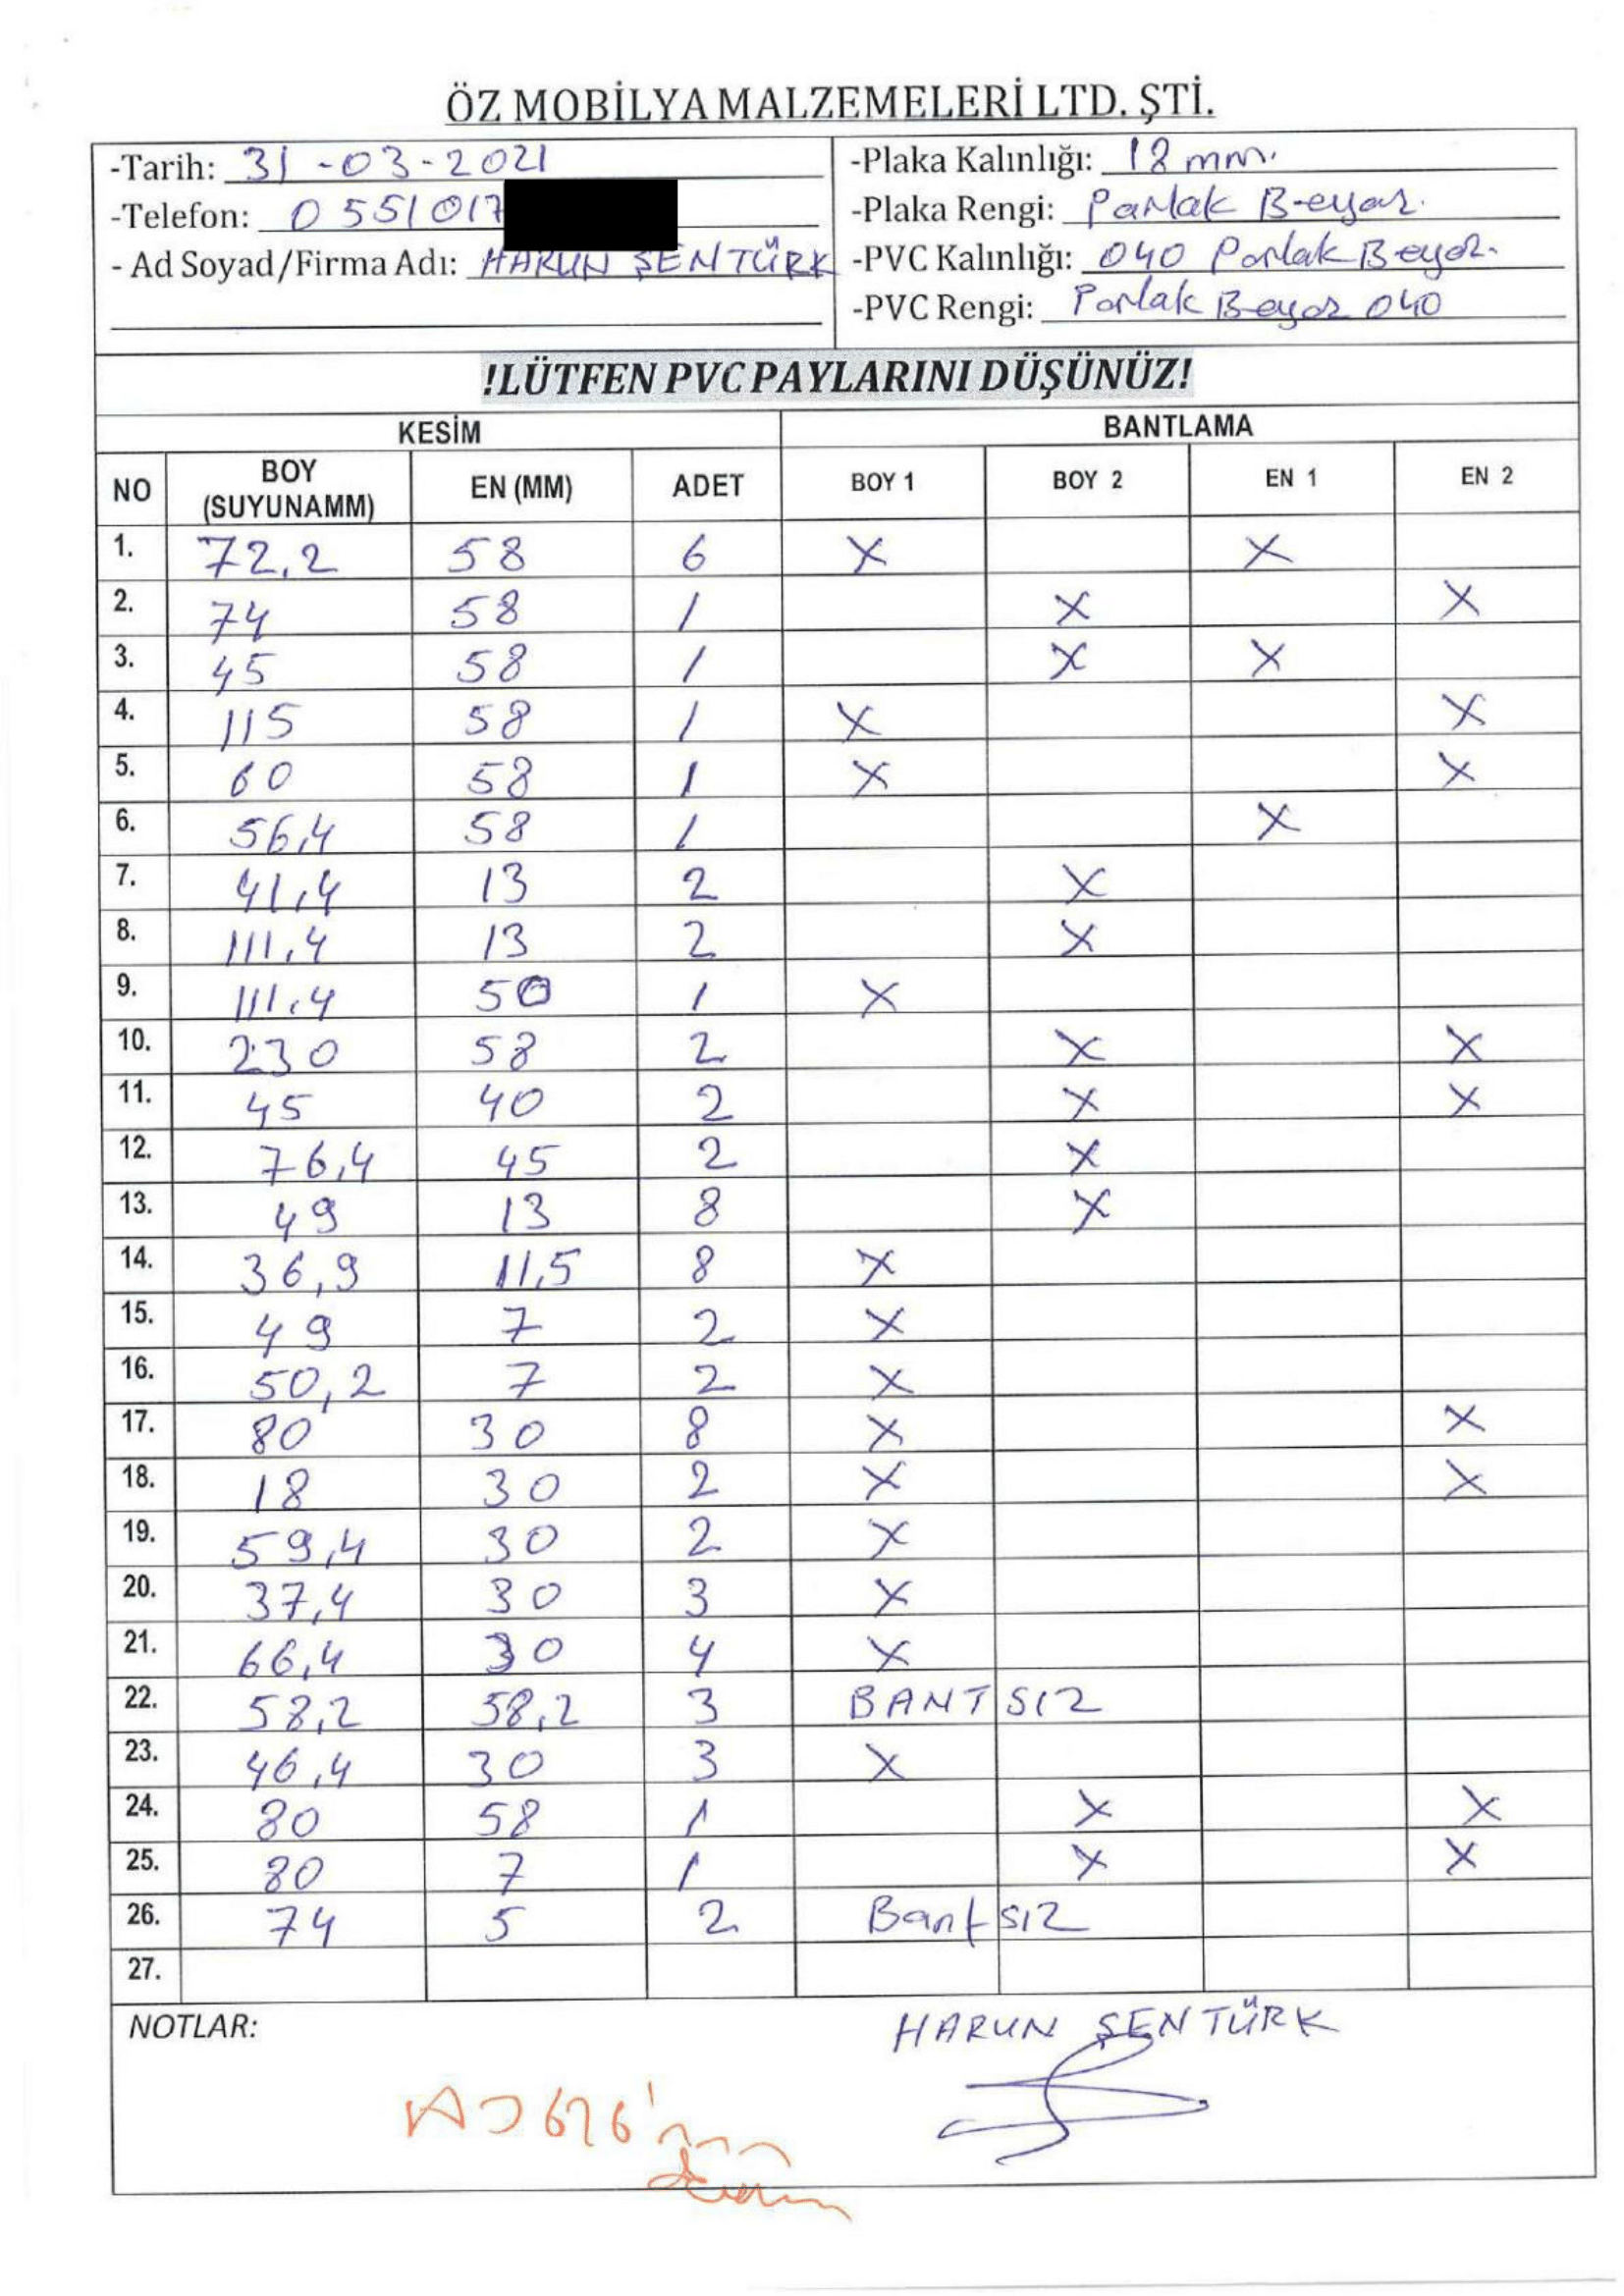 ÖZ MOBİLYA MALZEMELERİ LTD. ŞTİ.
-Tarih: 31-03-2021
-Telefon: 0551017
- Ad Soyad/Firma Adı: HARUN ŞENTÜRK
-Plaka Kalınlığı: 18 mm.
-Plaka Rengi: Parlak Beyaz.
-PVC Kalınlığı: 040 Parlak Beyaz.
-PVC Rengi: Parlak Beyaz 040
!LÜTFEN PVC PAYLARINI DÜŞÜNÜZ!
KESİM BANTLAMA
NO BOY (SUYUNAMM) EN (MM) ADET BOY 1 BOY 2 EN 1 EN 2
1. 72,2 58 6 X X
2. 74 58 1 X X
3. 45 58 1 X X
4. 115 58 1 X X
5. 60 58 1 X X
6. 56,4 58 1 X
7. 41,4 13 2 X
8. 111,4 13 2 X
9. 111,4 50 1 X
10. 230 58 2 X X
11. 45 40 2 X X
12. 76,4 45 2 X
13. 49 13 8 X
14. 36,9 11,5 8 X
15. 49 7 2 X
16. 50,2 7 2 X
17. 80 30 8 X X
18. 18 30 2 X X
19. 59,4 30 2 X
20. 37,4 30 3 X
21. 66,4 30 4 X
22. 58,2 58,2 3 BANTSIZ
23. 46,4 30 3 X
24. 80 58 1 X X
25. 80 7 1 X X
26. 74 5 2 Bantsız
27.
NOTLAR:
HARUN ŞENTÜRK